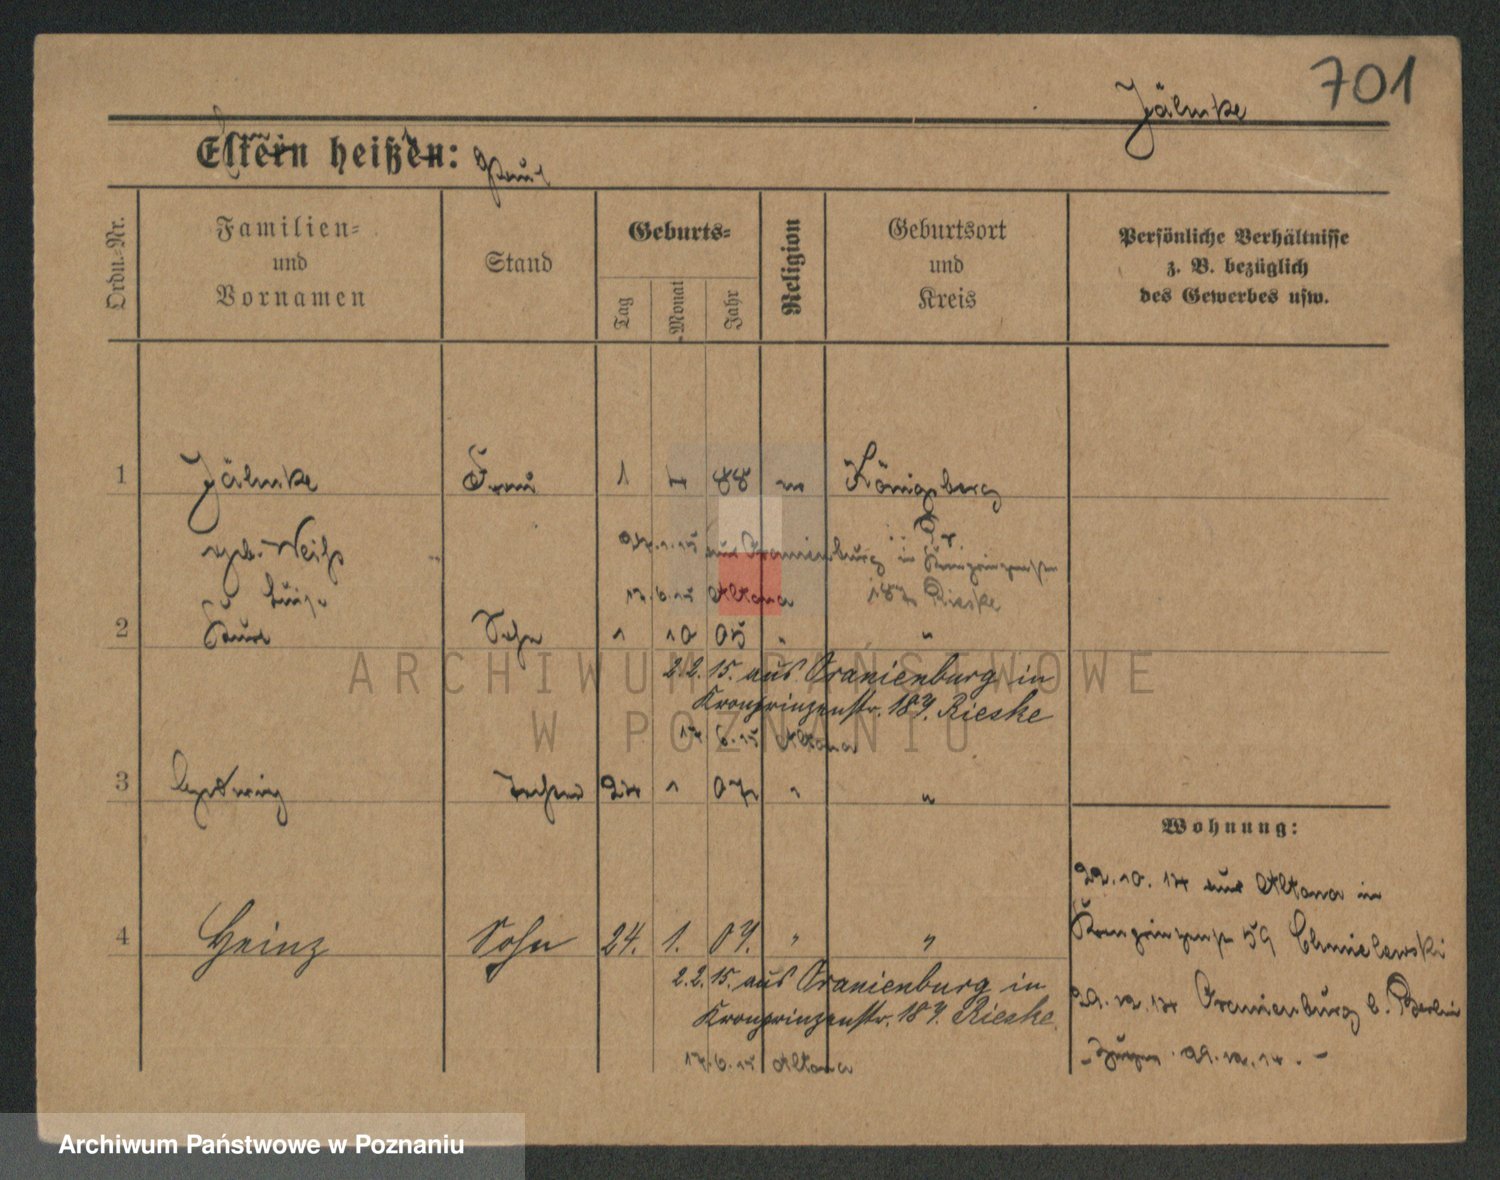 701
Jälmke
Eltern heißen:
Paul
Ordn.-Nr.
Familien-
und
Vornamen
Stand
Geburts-
Tag
Monat
Jahr
Religion
Geburtsort
und
Kreis
Persönliche Verhältnisse
z. B. bezüglich
des Gewerbes usw.
1 Jälmke Frau 1 88 Königsberg
geb.
Pr.
aus Oranienburg in Kronprinzenstr
17.6.15 Altona 187 Rieske
2 Kurt Sohn 1 10 05 " "
2.2.15. aus Oranienburg in
Kronprinzenstr. 187. Rieske
17.6.15 Altona
3 Hedwig Tochter 24 1 07 " "
4 Heinz Sohn 24. 1. 07. " "
2.2.15. aus Oranienburg in
Kronprinzenstr. 187. Rieske.
17.6.15 Altona
Wohnung:
22.10.14 aus Altona in
Kronprinzenstr 59 Chmielewski
29.12.14 Oranienburg b. Berlin
29.12.14. -
ARCHIWUM PAŃSTWOWE
W POZNANIU
Archiwum Państwowe w Poznaniu